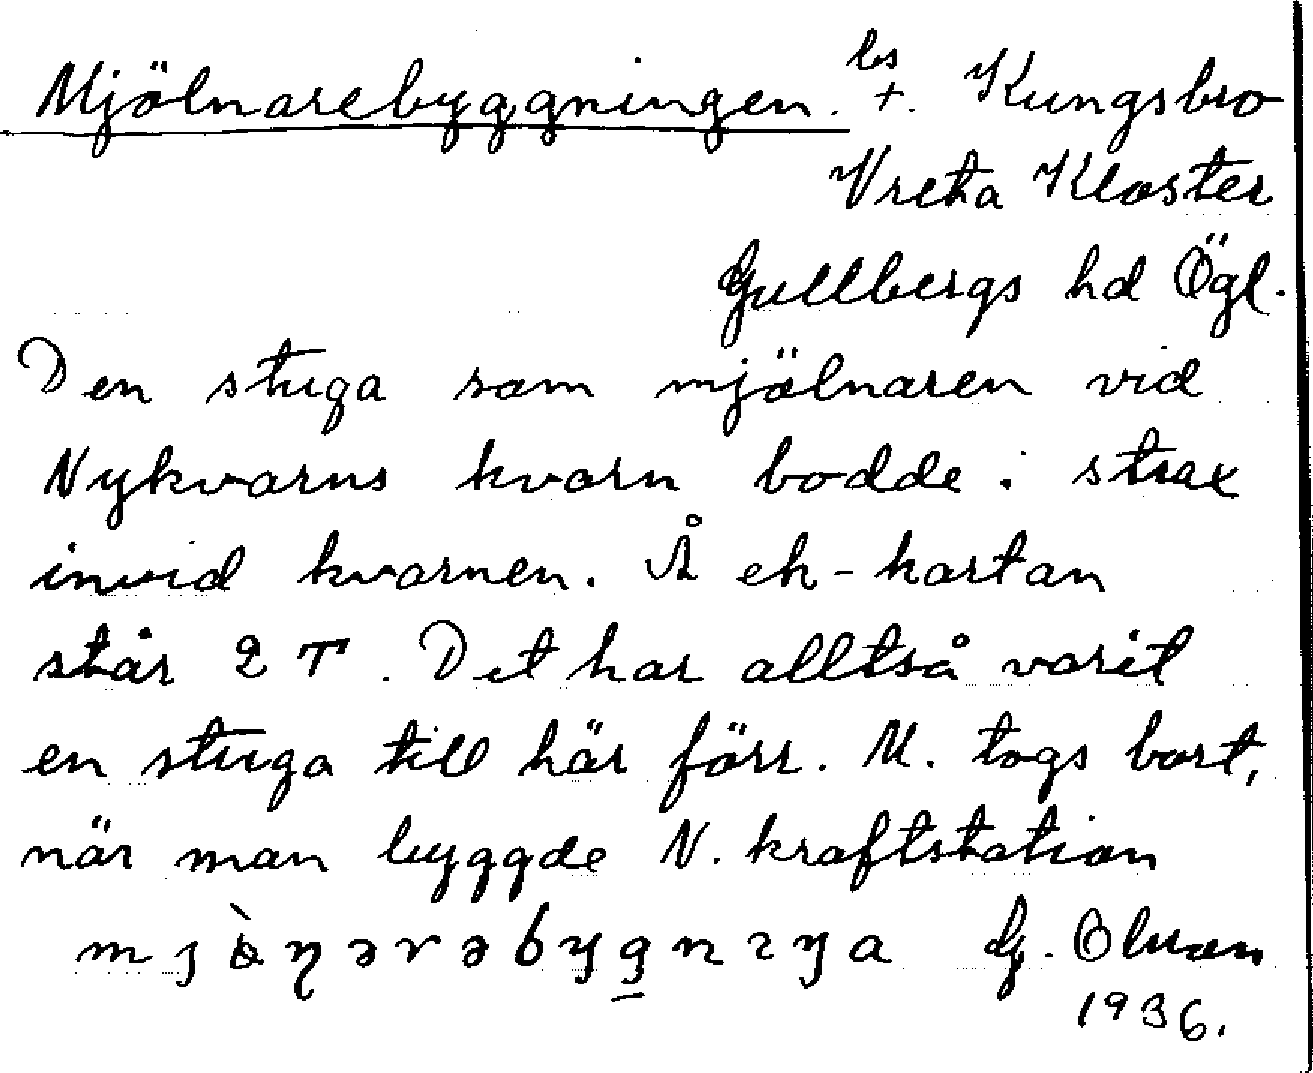 Mjölnarebyggningen. bs +. Kungsbro
Vreta Kloster
Gullbergs hd Ögl.
Den stuga som mjölnaren vid
Nykvarns kvarn bodde i strax
invid kvarnen. Å ek-kartan
står 2 T. Det har alltså varit
en stuga till här förr. M. togs bort,
när man byggde N. kraftstation
G. Olsson
1936.